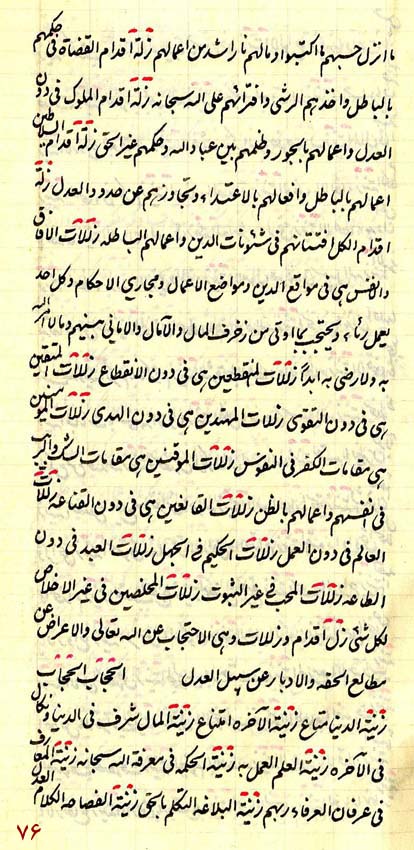 ما انزل حسبهم ما اكتبوا ومالهم نار اشد من اعمالهم زلة اقدام القضاة فى حكمهم
بالباطل واخذهم الرشى وافترائهم على الله سبحانه زلة اقدام الملوك فى دون
العدل واعمالهم بالجور وظلمهم بين عباد الله وحكمهم غير الحق زلة اقدام السلاطين
اعمالهم بالباطل وافعالهم بالاعتداء وتجاوزهم عن حدود العدل زلة
اقدام الكل افتتانهم فى شئونات الدين واعمالهم الباطله زلات الافاق
والانفس هى فى مواقع الدين ومواضع الاعمال ومجارى الاحكام وكل احد
يعمل رئاء ويحتجب بما اوتى من زخرف المال والآمال والامانى بينهم ومالا الله
به ولا رضى به ابدا زلات المنقطعين هى فى دون الانقطاع زلات المتقين
هى فى دون التقوى زلات المهتدين هى فى دون الهدى زلات المؤمنين
هى مقامات الكفر فى النفوس زلات الموقنين هى مقامات الشك والريب
فى انفسهم واعمالهم بالظن زلات القانعين هى فى دون القناعه زلات
العالم فى دون العمل زلات الحكيم فى الجهل زلات العبد فى دون
الطاعه زلات المحب فى غير الثبوت زلات المخلصين فى غير الاخلاص
لكل شئ زل اقدام وزلات وهى الاحتجاب عن الله تعالى والاعراض عن
مطالع الحقه والادبار عن سبيل العدل الحجاب الحجاب
زينة الدنيا متاع زينة الآخره امتناع زينة المال شرف فى الدنيا ونكال
فى الآخره زينة العلم العمل به زينة الحكمه فى معرفة الله سبحانه زينة المعارف
فى عرفان العرفاء ربهم زينة البلاغه التكلم بالحق زينة الفصاحه الكلام العدل
٧۶